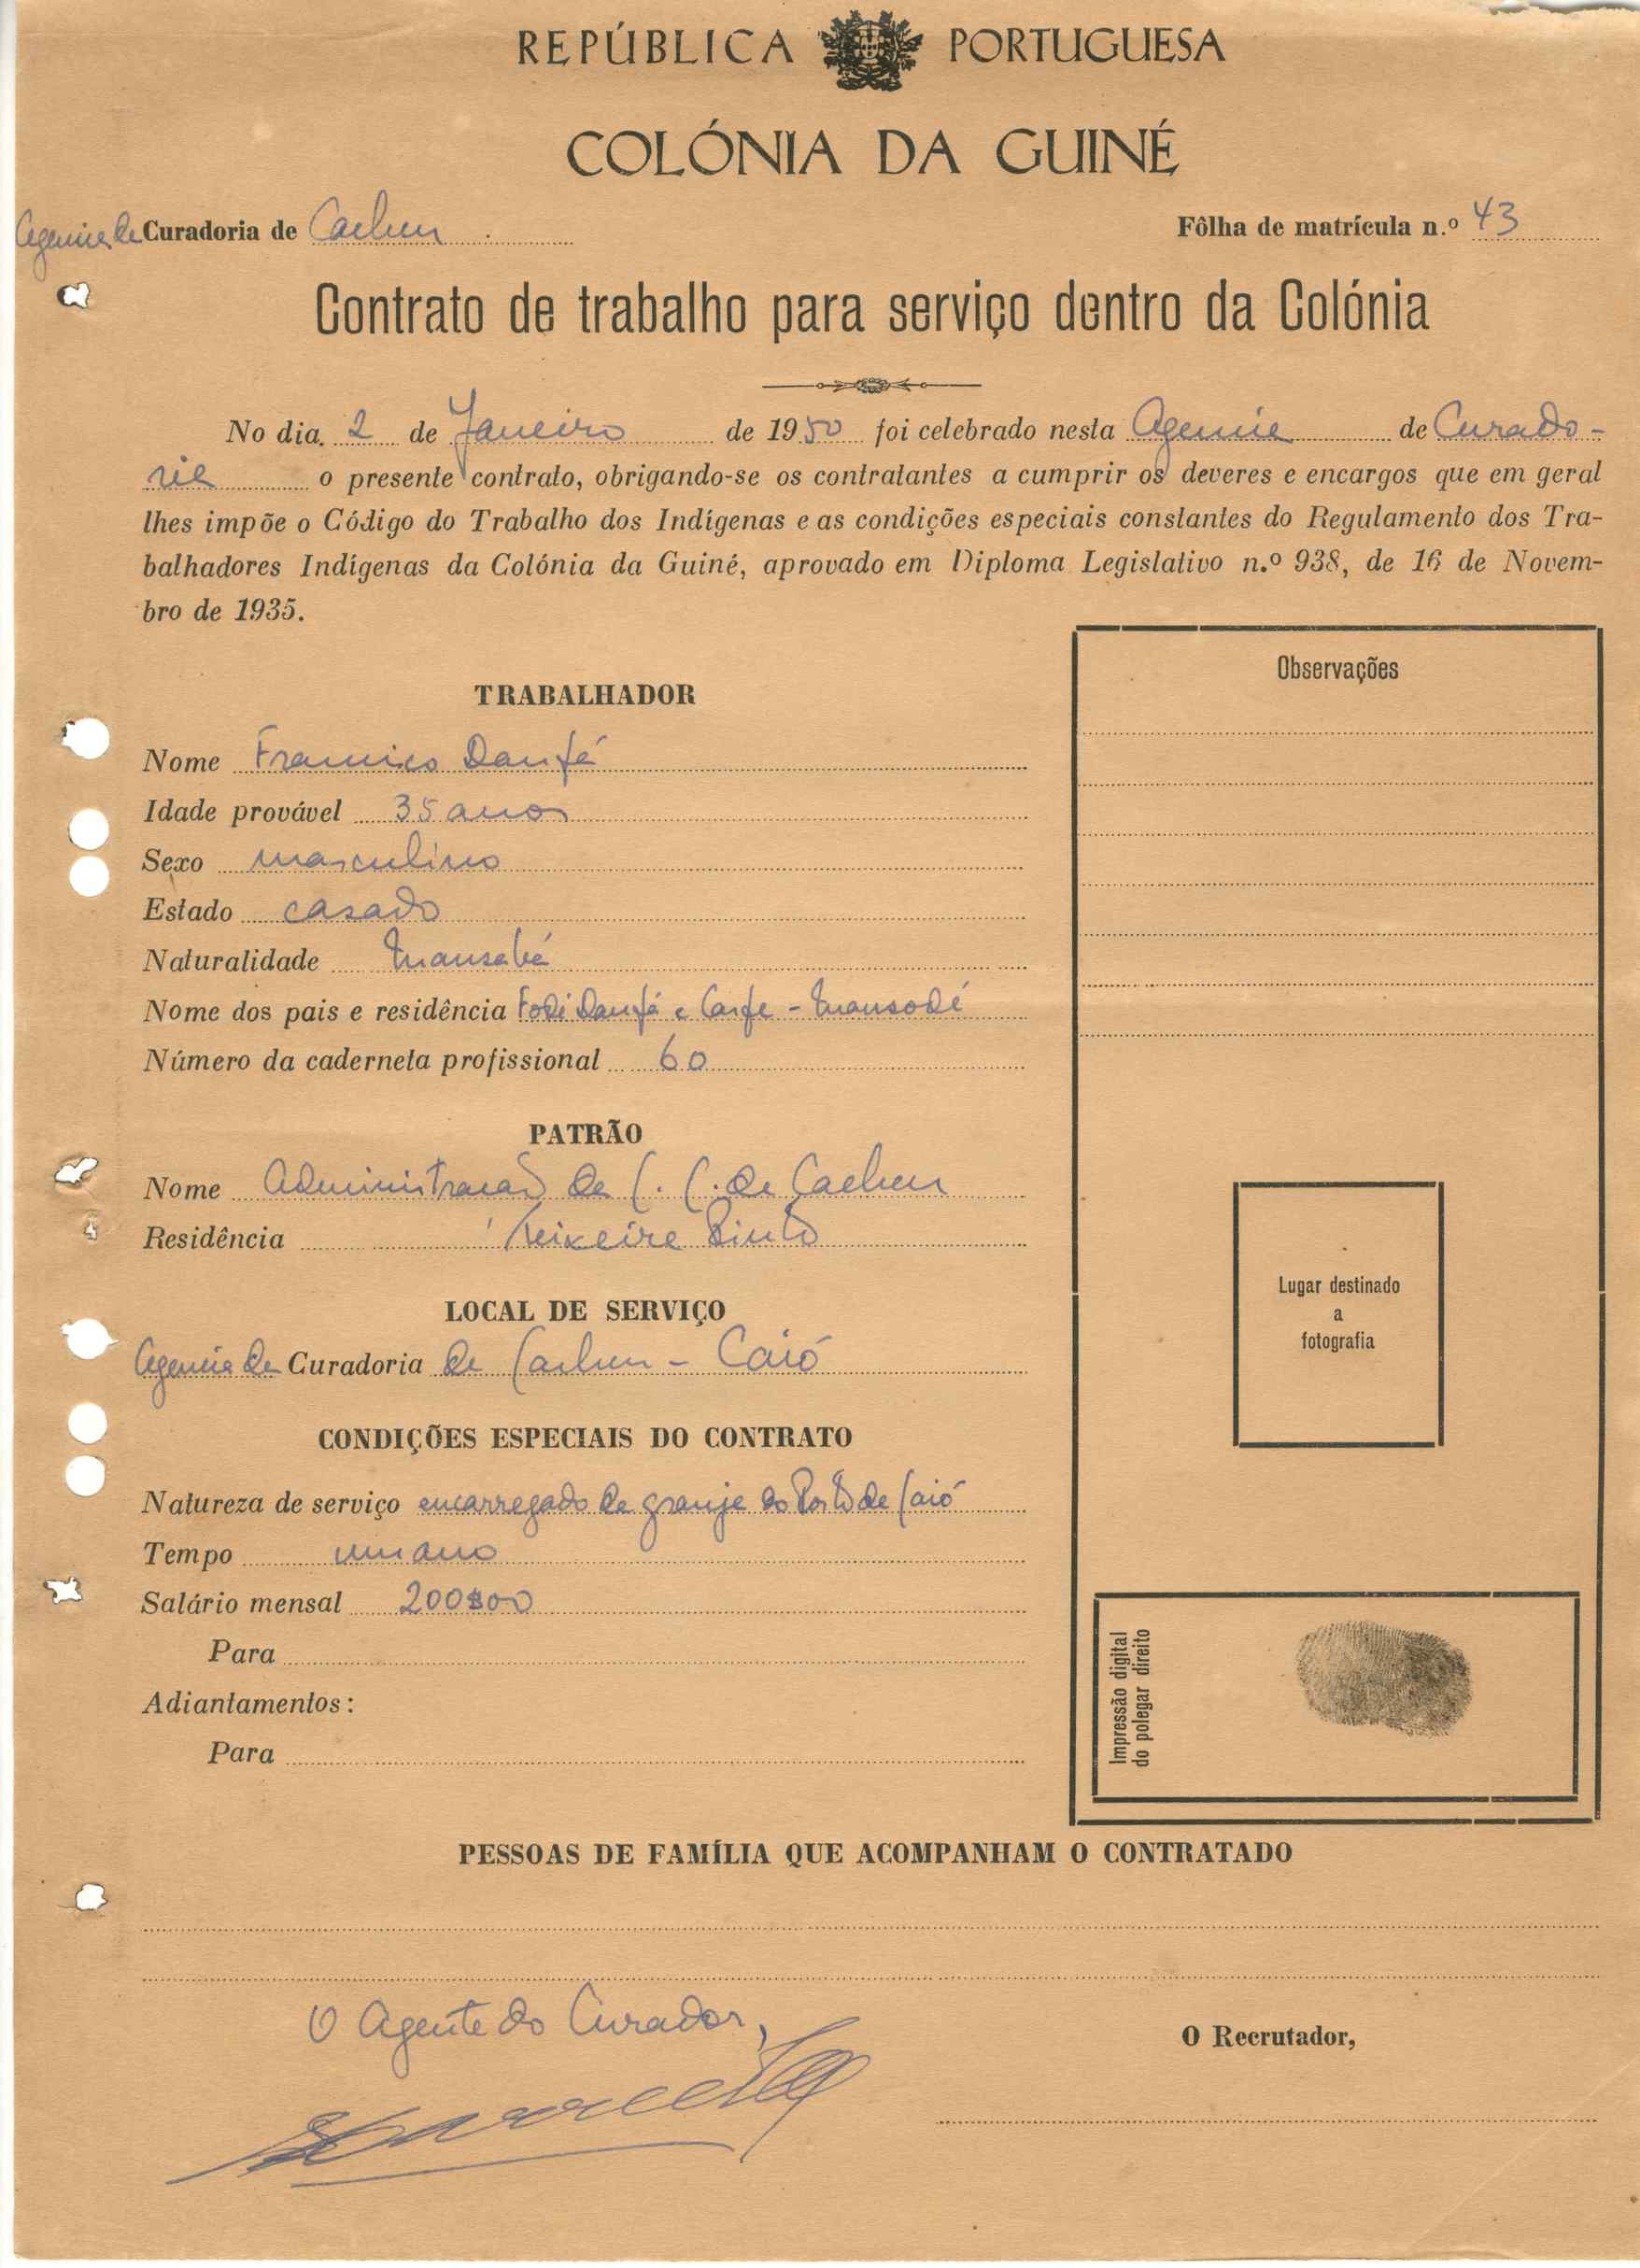 REPÚBLICA PORTUGUESA
COLÓNIA DA GUINÉ
Agencia de Curadoria de Cacheu
Fôlha de matrícula n.º 43
Contrato de trabalho para serviço dentro da Colónia
No dia 2 de Janeiro de 1950 foi celebrado nesta Agencia de Curado-
ria o presente contrato, obrigando-se os contratantes a cumprir os deveres e encargos que em geral
lhes impõe o Código do Trabalho dos Indígenas e as condições especiais constantes do Regulamento dos Tra-
balhadores Indígenas da Colónia da Guiné, aprovado em Diploma Legislativo n.º 938, de 16 de Novem-
bro de 1935.
Observações
TRABALHADOR
Nome Francisco Danfá
Idade provável 35 anos
Sexo masculino
Estado casado
Naturalidade Mansabá
Nome dos pais e residência Fodé Danfá e
Número da caderneta profissional 60
PATRÃO
Nome Administração da C. C. de Cacheu
Residência Teixeira Pinto
LOCAL DE SERVIÇO
Agencia de Curadoria de Cacheu - Caió
CONDIÇÕES ESPECIAIS DO CONTRATO
Natureza de serviço encarregado da granja do Porto de Caió
Tempo um ano
Salário mensal 200$00
Para
Adiantamentos:
Para
Lugar destinado
a
fotografia
Impressão digital
do polegar direito
PESSOAS DE FAMÍLIA QUE ACOMPANHAM O CONTRATADO
O Agente do Curador,
O Recrutador,